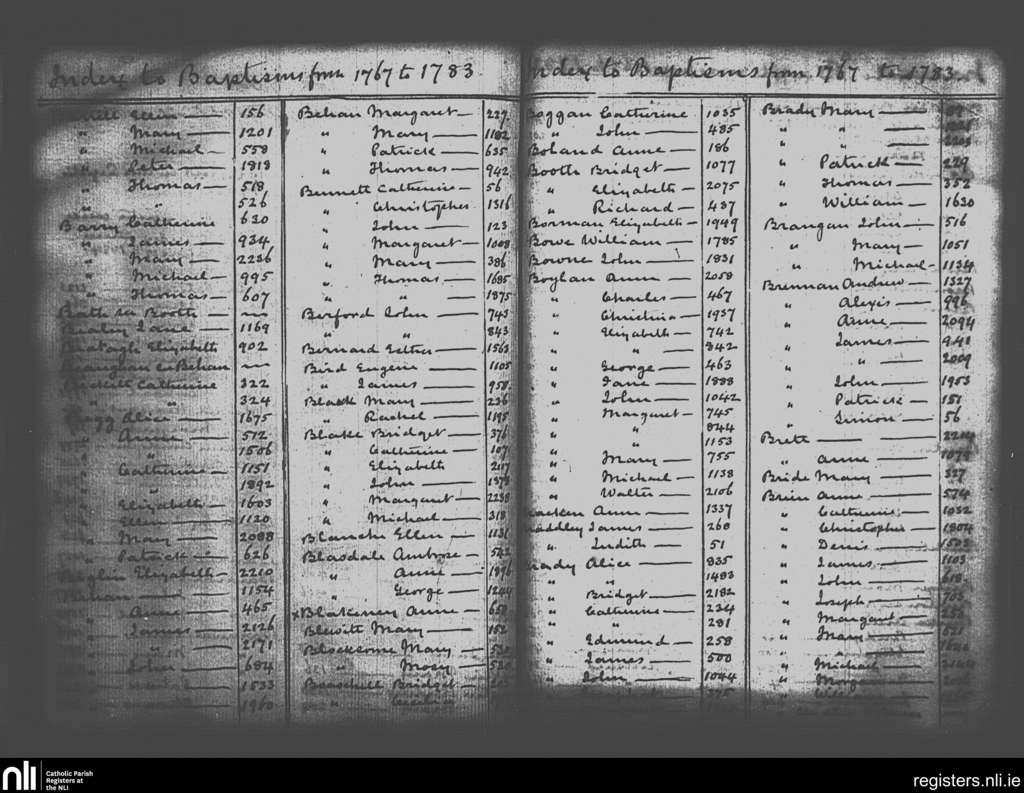 Index to Baptisms from 1767 to 1783
Ellen — 156
" Mary — 1201
" Michael — 558
" Peter — 1818
" Thomas — 518
" " 526
Barry Catherine 630
" James — 934
" Mary — 2236
" Michael — 995
" Thomas — 607
Bath see Booth —
Jane — 1169
Elizabeth 902
Behan —
Catherine 322
" " 324
Alice — 1675
" Anne — 572
" " 1506
" Catherine — 1151
" " 1892
" Elizabeth — 1603
" Ellen — 1120
" Mary — 2088
" Patrick — 626
Elizabeth — 2210
— 1154
" Anne — 465
" James — 2126
" " 2171
" John — 684
1533
1960
Behan Margaret — 227
" Mary — 1182
" Patrick — 635
" Thomas — 942
Bennett Catherine — 56
" Christopher 1316
" John — 123
" Margaret — 1008
" Mary — 386
" Thomas — 1685
" " — 1875
Berford John — 743
" " 843
Bernard Esther — 1563
Bird Eugene — 1105
" James — 958
Black Mary — 236
" Rachel — 1195
Blake Bridget — 376
" Catherine — 107
" Elizabeth 2117
" John — 1373
" Margaret — 2238
" Michael — 318
Blanche Ellen — 1131
Blasdale Ambrose — 542
" Anne — 1896
" George — 1244
x Blakeney Anne — 658
Blewitt Mary — 152
Mary — 530
" 530
Bridget —
Index to Baptisms from 1767 to 1783
Boggan Catherine 1035
" John — 485
Boland Anne — 186
Booth Bridget — 1077
" Elizabeth — 2075
" Richard — 437
Borman Elizabeth — 1949
Bowe William — 1785
Bowne John — 1831
Boylan Anne — 2058
" Charles — 467
" Christina — 1937
" Elizabeth — 742
" " — 842
" George — 463
" Jane — 1888
" John — 1042
" Margaret — 745
" " 844
" " 1153
" Mary — 755
" Michael — 1138
" Walter — 2106
Anne — 1337
James — 268
" Judith — 51
Brady Alice — 835
" " 1483
" Bridget — 2182
" Catherine — 234
" " 281
" Edmund — 258
" James — 500
" John — 1044
Brady Mary —
" " —
" " — 2203
" Patrick — 229
" Thomas — 352
" William — 1630
Brangan John — 516
" Mary — 1051
" Michael — 1134
Brennan Andrew — 1327
" Alexis — 996
" Anne — 2094
" James — 941
" " — 2009
" John — 1953
" Patrick — 151
" Simon — 56
Brett — — 2214
" Anne — 1079
Bride Mary — 327
Brien Anne — 574
" Catherine — 1032
" Christopher — 1804
" Denis — 1503
" James — 1103
" John — 618
" Joseph — 703
" Margaret —
" Mary — 521
" " —
" Michael —
nli
Catholic Parish
Registers at
the NLI
registers.nli.ie